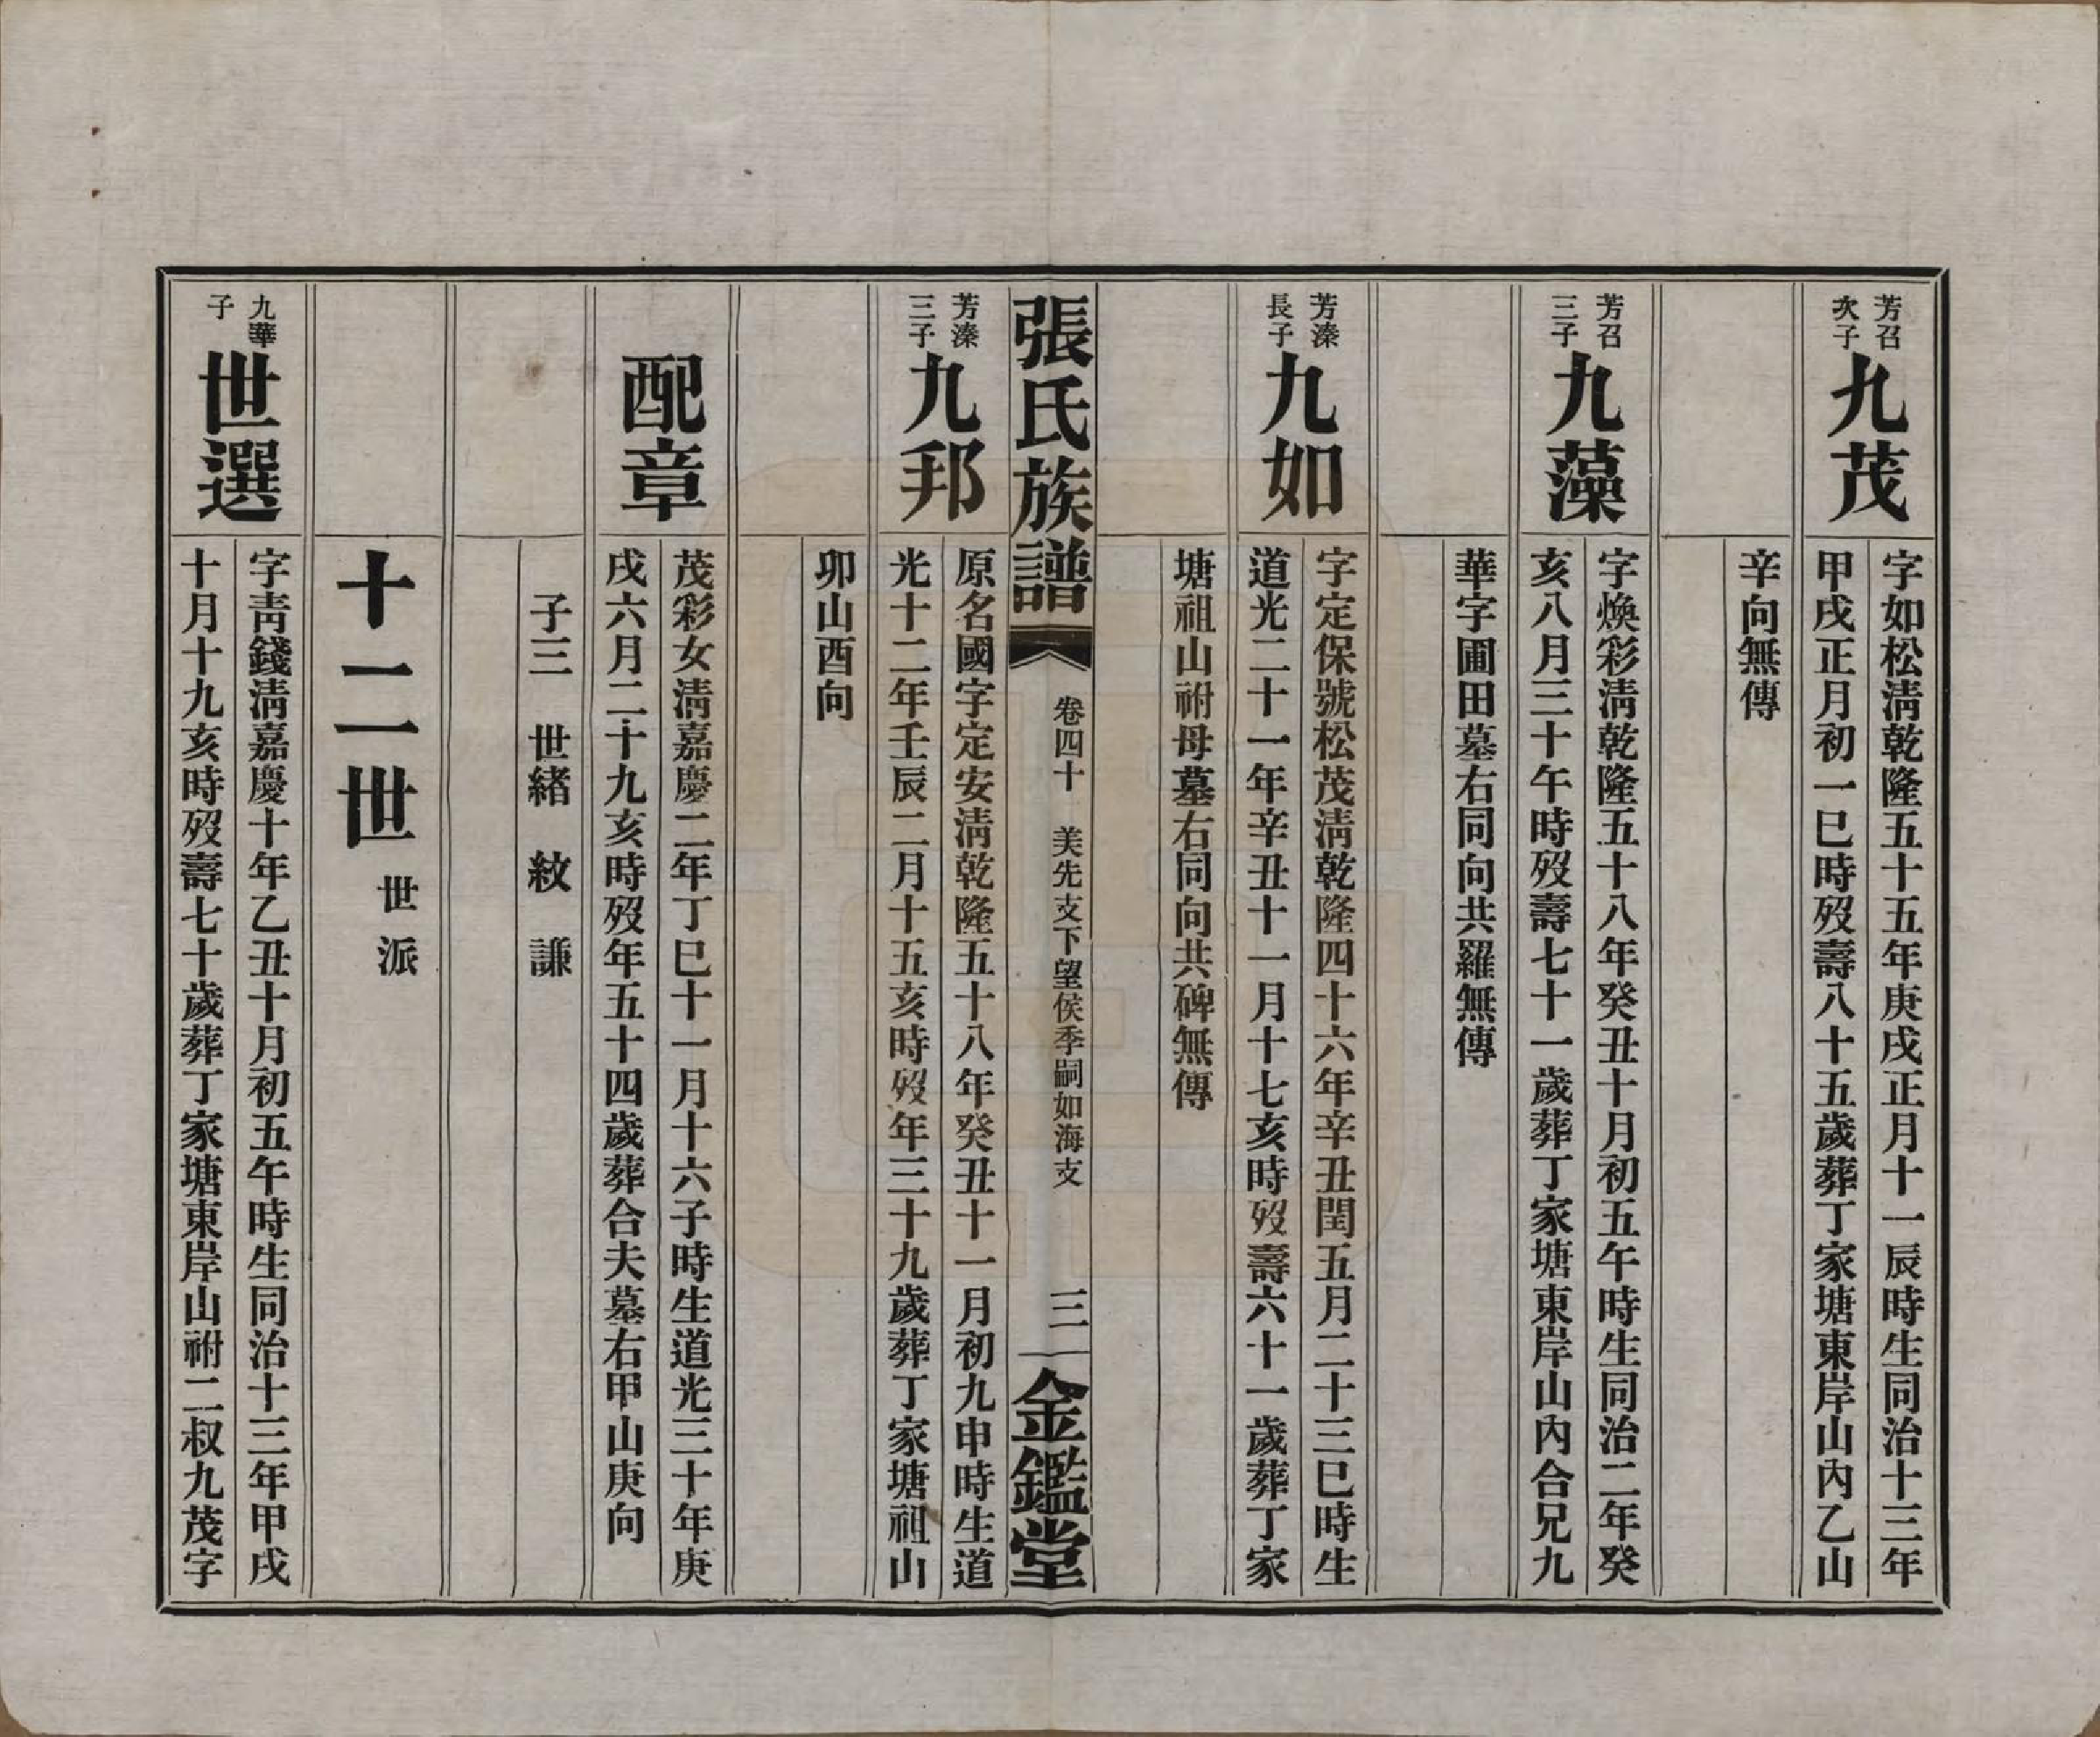 芳召
次子
九茂
字如松淸乾隆五十五年庚戌正月十一辰時生同治十三年
甲戌正月初一巳時歿壽八十五歲葬丁家塘東岸山內乙山
辛向無傳
芳召
三子
九藻
字煥彩淸乾隆五十八年癸丑十月初五午時生同治二年癸
亥八月三十午時歿壽七十一歲葬丁家塘東岸山內合兄九
華字圃田墓右同向共羅無傳
芳溱
長子
九如
字定保號松茂淸乾隆四十六年辛丑閏五月二十三巳時生
道光二十一年辛丑十一月十七亥時歿壽六十一歲葬丁家
塘祖山祔母墓右同向共碑無傳
張氏族譜
卷四十 美先支下望侯季嗣如海支
三
金鑑堂
芳溱
三子
九邦
原名國字定安淸乾隆五十八年癸丑十一月初九申時生道
光十二年壬辰二月十五亥時歿年三十九歲葬丁家塘祖山
卯山酉向
配章
茂彩女淸嘉慶二年丁巳十一月十六子時生道光三十年庚
戌六月二十九亥時歿年五十四歲葬合夫墓右甲山庚向
子三 世緒 紋 謙
十二世 世派
九華
子
世選
字靑錢淸嘉慶十年乙丑十月初五午時生同治十三年甲戌
十月十九亥時歿壽七十歲葬丁家塘東岸山祔二叔九茂字